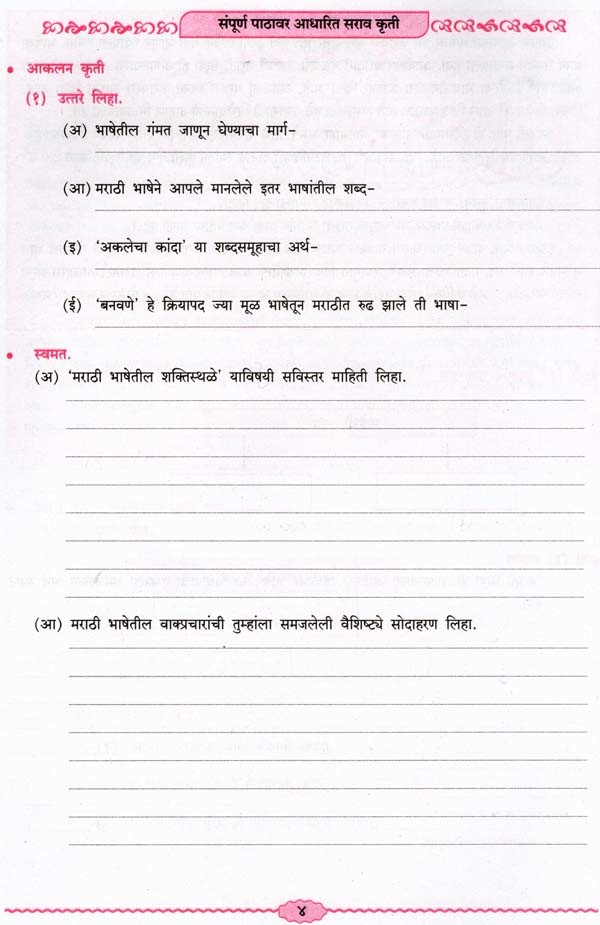 संपूर्ण पाठावर आधारित सराव कृती
• आकलन कृती
(१) उत्तरे लिहा.
(अ) भाषेतील गंमत जाणून घेण्याचा मार्ग–
(आ) मराठी भाषेने आपले मानलेले इतर भाषांतील शब्द–
(इ) ‘अकलेचा कांदा’ या शब्दसमूहाचा अर्थ–
(ई) ‘बनवणे’ हे क्रियापद ज्या मूळ भाषेतून मराठीत रुढ झाले ती भाषा–
• स्वमत.
(अ) ‘मराठी भाषेतील शक्तिस्थळे’ याविषयी सविस्तर माहिती लिहा.
(आ) मराठी भाषेतील वाक्प्रचारांची तुम्हांला समजलेली वैशिष्ट्ये सोदाहरण लिहा.
४